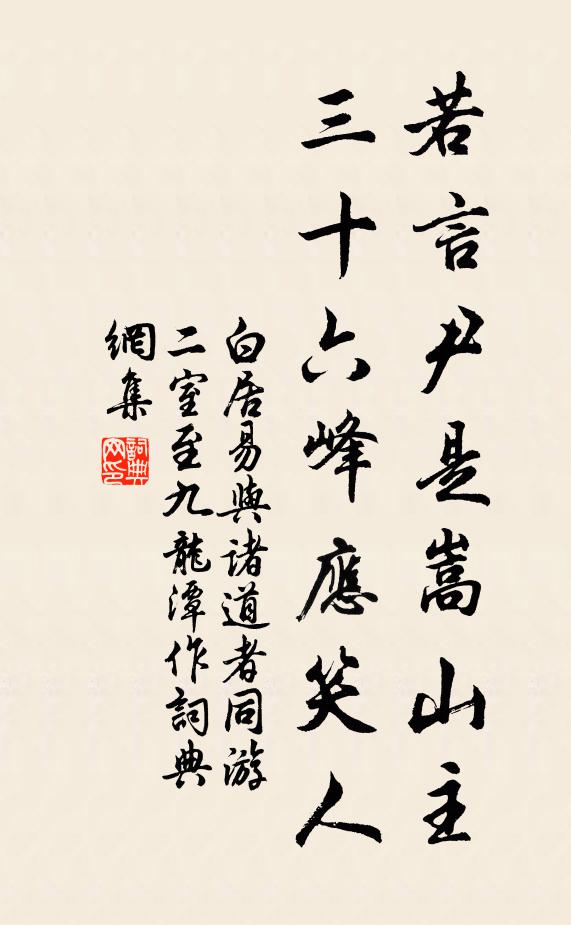 若言尹是嵩山主
三十六峰應笑人
白居易與諸道者同游
二室至九龍潭作詞典
網集
詞典網印